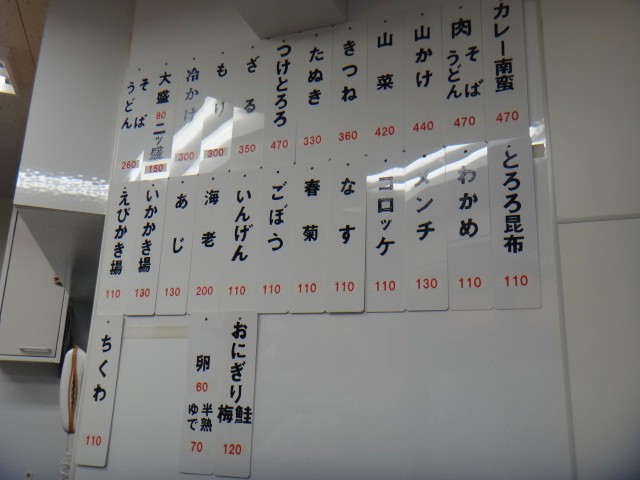 カレー南蛮 470
肉 そば うどん 470
山かけ 440
山菜 420
きつね 360
たぬき 330
つけとろろ 470
ざる 350
もり 300
冷かけ 300
大盛 80 二ッ盛 150
そば うどん 260
とろろ昆布 110
わかめ 110
メンチ 130
コロッケ 110
なす 110
春菊 110
ごぼう 110
いんげん 110
海老 200
あじ 130
いかかき揚 130
えびかき揚 110
おにぎり 鮭 梅 120
卵 60 半熟 ゆで 70
ちくわ 110